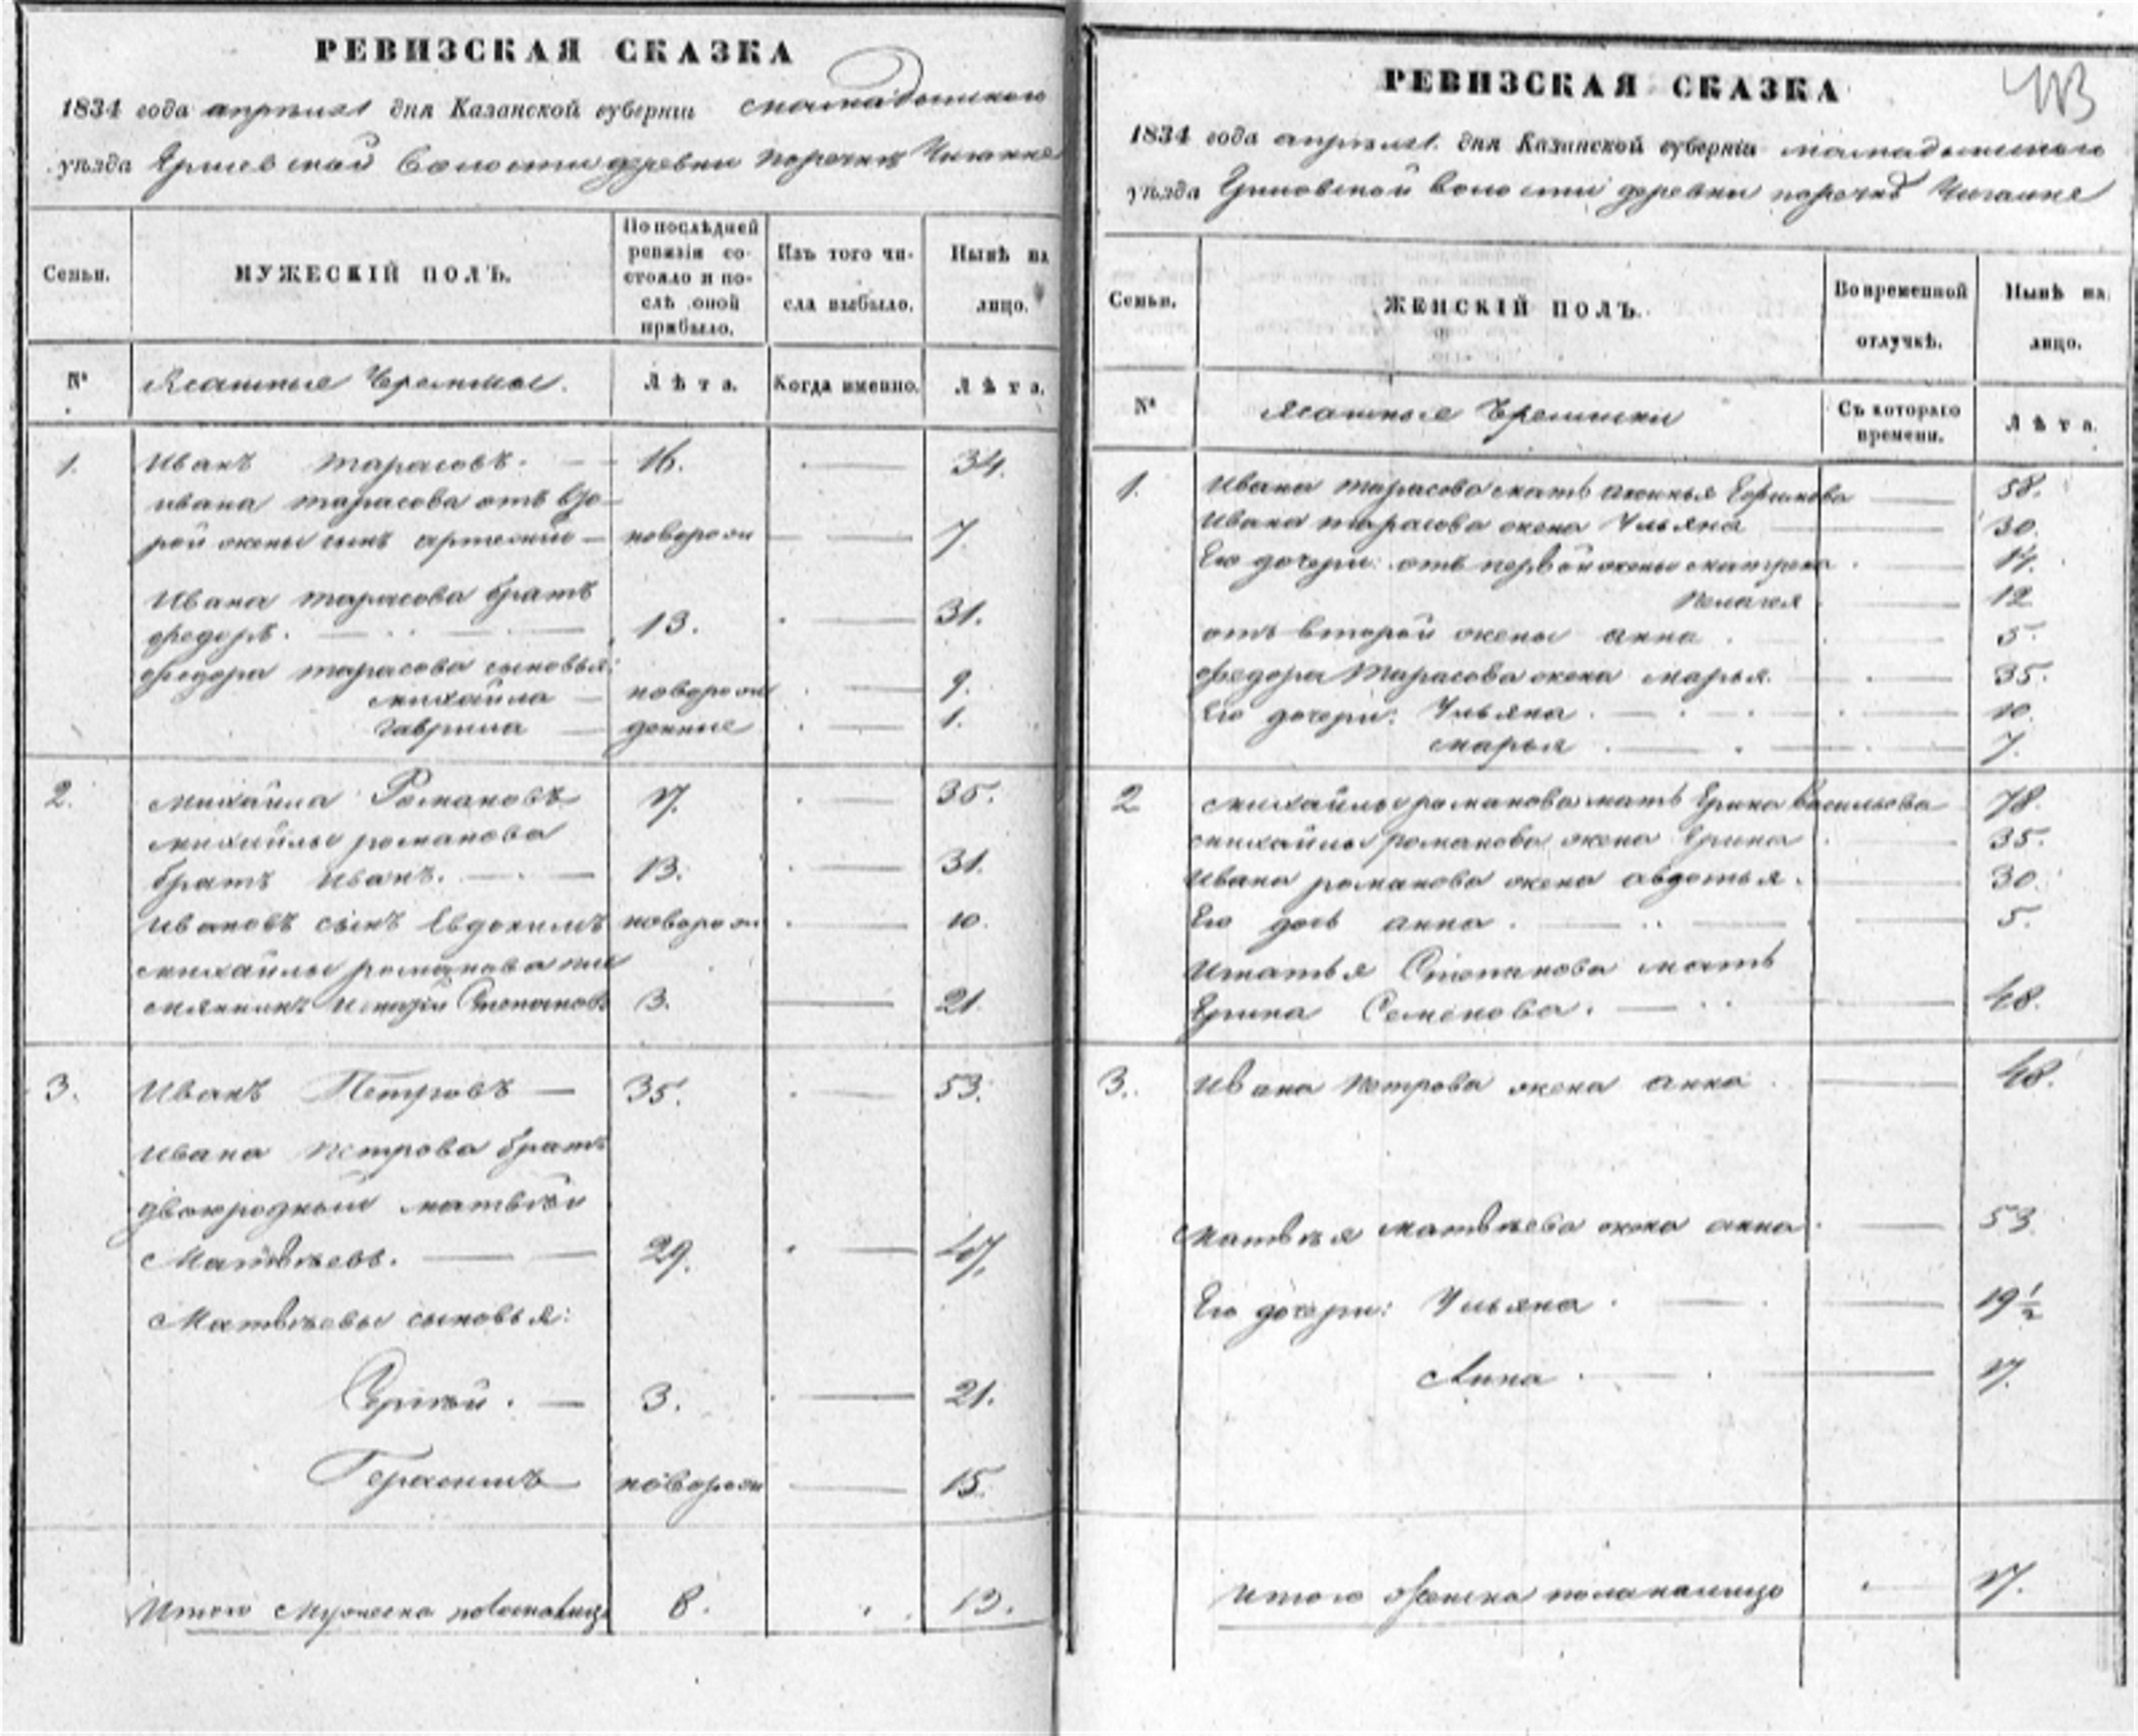 РЕВИЗСКАЯ СКАЗКА
1834 года апреля дня Казанской губерніи мамадышскаго
уѣзда волости деревни поречкѣ
Семьи.
МУЖЕСКІЙ ПОЛЪ.
По послѣдней ревизіи состояло и послѣ оной прибыло.
Изъ того числа выбыло.
Нынѣ на лицо.
№
Ясашные Черемисы.
Лѣта.
Когда именно.
Лѣта.
1. Иванъ Тарасовъ. 16. 34.
ивана тарасова отъ вто-
рой жены сынъ новорож 7
Ивана тарасова братъ
федоръ. 13. 31.
федора тарасова сыновья:
михайла новорож 9.
гаврила денные 1.
2. михайла Романовъ 17. 35.
михайлы романова
братъ иванъ. 13. 31.
ивановъ сынъ Евдокимъ новорож 10.
михайлы романова пле
мянникъ Степановъ 3. 21
3. Иванъ Петровъ 35. 53.
ивана петрова братъ
двоюродный матвѣй
Матвѣевъ. 29. 47.
Матвѣевы сыновья:
Сергѣй. 3. 21.
Герасимъ новорож 15.
Итого мужеска пола налицо 8. 13.
РЕВИЗСКАЯ СКАЗКА
1834 года апреля дня Казанской губерніи мамадышскаго
уѣзда волости деревни поречкѣ
Семьи.
ЖЕНСКІЙ ПОЛЪ.
Во временной отлучкѣ.
Нынѣ на лицо.
№
Ясашные Черемиски
Съ котораго времени.
Лѣта.
1. Ивана тарасова мать 58.
Ивана тарасова жена Ульяна 30.
Его дочери: отъ первой жены матрена 14.
Пелагея 12
отъ второй жены анна 5.
федора Тарасова жена марья. 35.
Его дочери: Ульяна. 10.
марья 7.
2 михайлы романова мать Ерина Васильева 78.
михайлы романова жена Ерина 35.
Ивана романова жена авдотья. 30.
Его дочь анна. 5.
Игнатья Степанова мать
Ерина Семенова. 48.
3. Ивана петрова жена анна 48.
Матвѣя матвѣева жена анна. 53.
Его дочери: Ульяна. 19 1/2
Анна 17.
итого женска пола налицо 17.